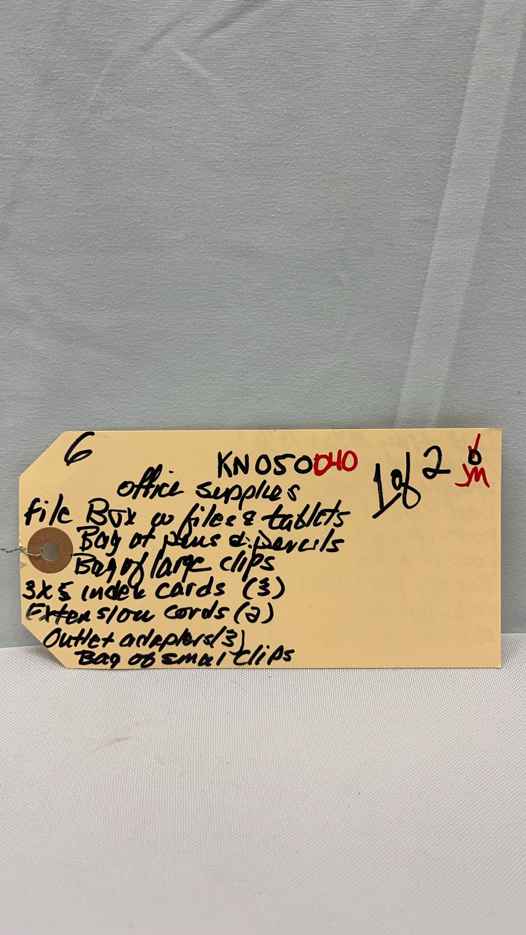 6
KN050040
1 of 2
office supplies
File Box w files & tablets
Bag of pens & pencils
Bag of large clips
3x5 index cards (3)
Extension cords (2)
Outlet adapters (3)
Bag of small clips